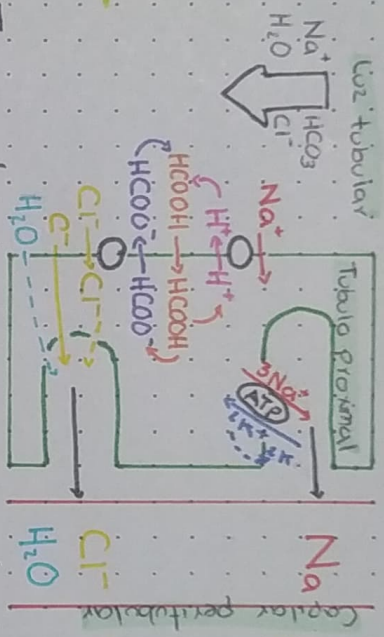 Luz tubular
Na⁺ HCO3
H2O Cl⁻
Tubulo proximal
Na⁺
H⁺ ← H⁺
HCOOH → HCOOH
HCOO⁻ ← HCOO⁻
Cl⁻ → Cl⁻
C⁻
H2O
3Na⁺
ATP
2K⁺
Na
Cl⁻
H2O
Capilar peritubular